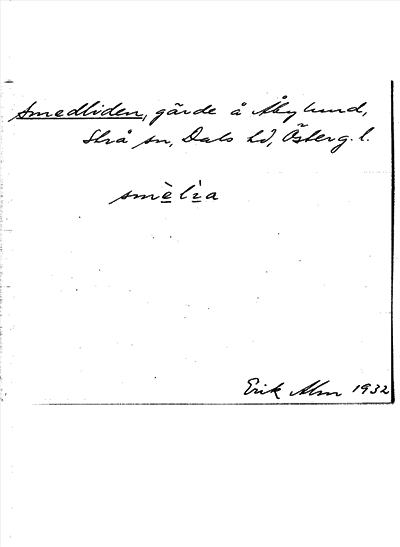 Smedliden, gärde å Åbylund,
Strå sn, Dals hd, Österg. l.
smèlìa
Erik Alm 1932